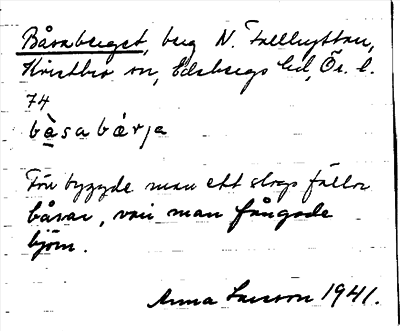 Båsaberget, berg N. Fallhyttan,
Kristbro sn, Edsbergs hd, Ör. l.
74
bå̀sabæ̀rja
Förr byggde man ett slags fällor
båsar, vari man fångade
björn.
Anna Larsson 1941.